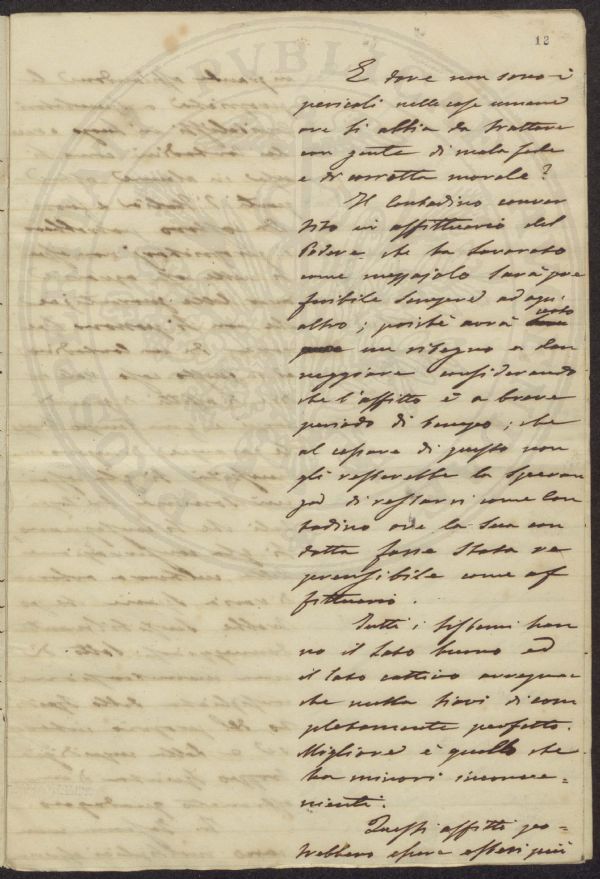 13
E dove non sono i
pericoli nelle cose umane
ove si abbia da trattare
con gente di mala fede
e di corrotta morale?
Il Contadino conver
tito in affittuario del
Podere che ha lavorato
come mezzajolo sarà pre
feribile sempre ad ogni
altro; poichè avrà certo
un ritegno a dan
neggiare considerando
che l'affitto è a breve
periodo di tempo; che
al cessare di questo non
gli resterebbe la speran
za di restarvi come Con
tadino ove la sua con
dotta fosse stata re
prensibile come af
fittuario.
Tutti i sistemi han
no il lato buono ed
il lato cattivo avvegna
che nulla siavi di com
pletamente perfetto.
Migliore è quello che
ha minori inconve=
nienti.
Questi affitti po=
trebbero essere estesi più